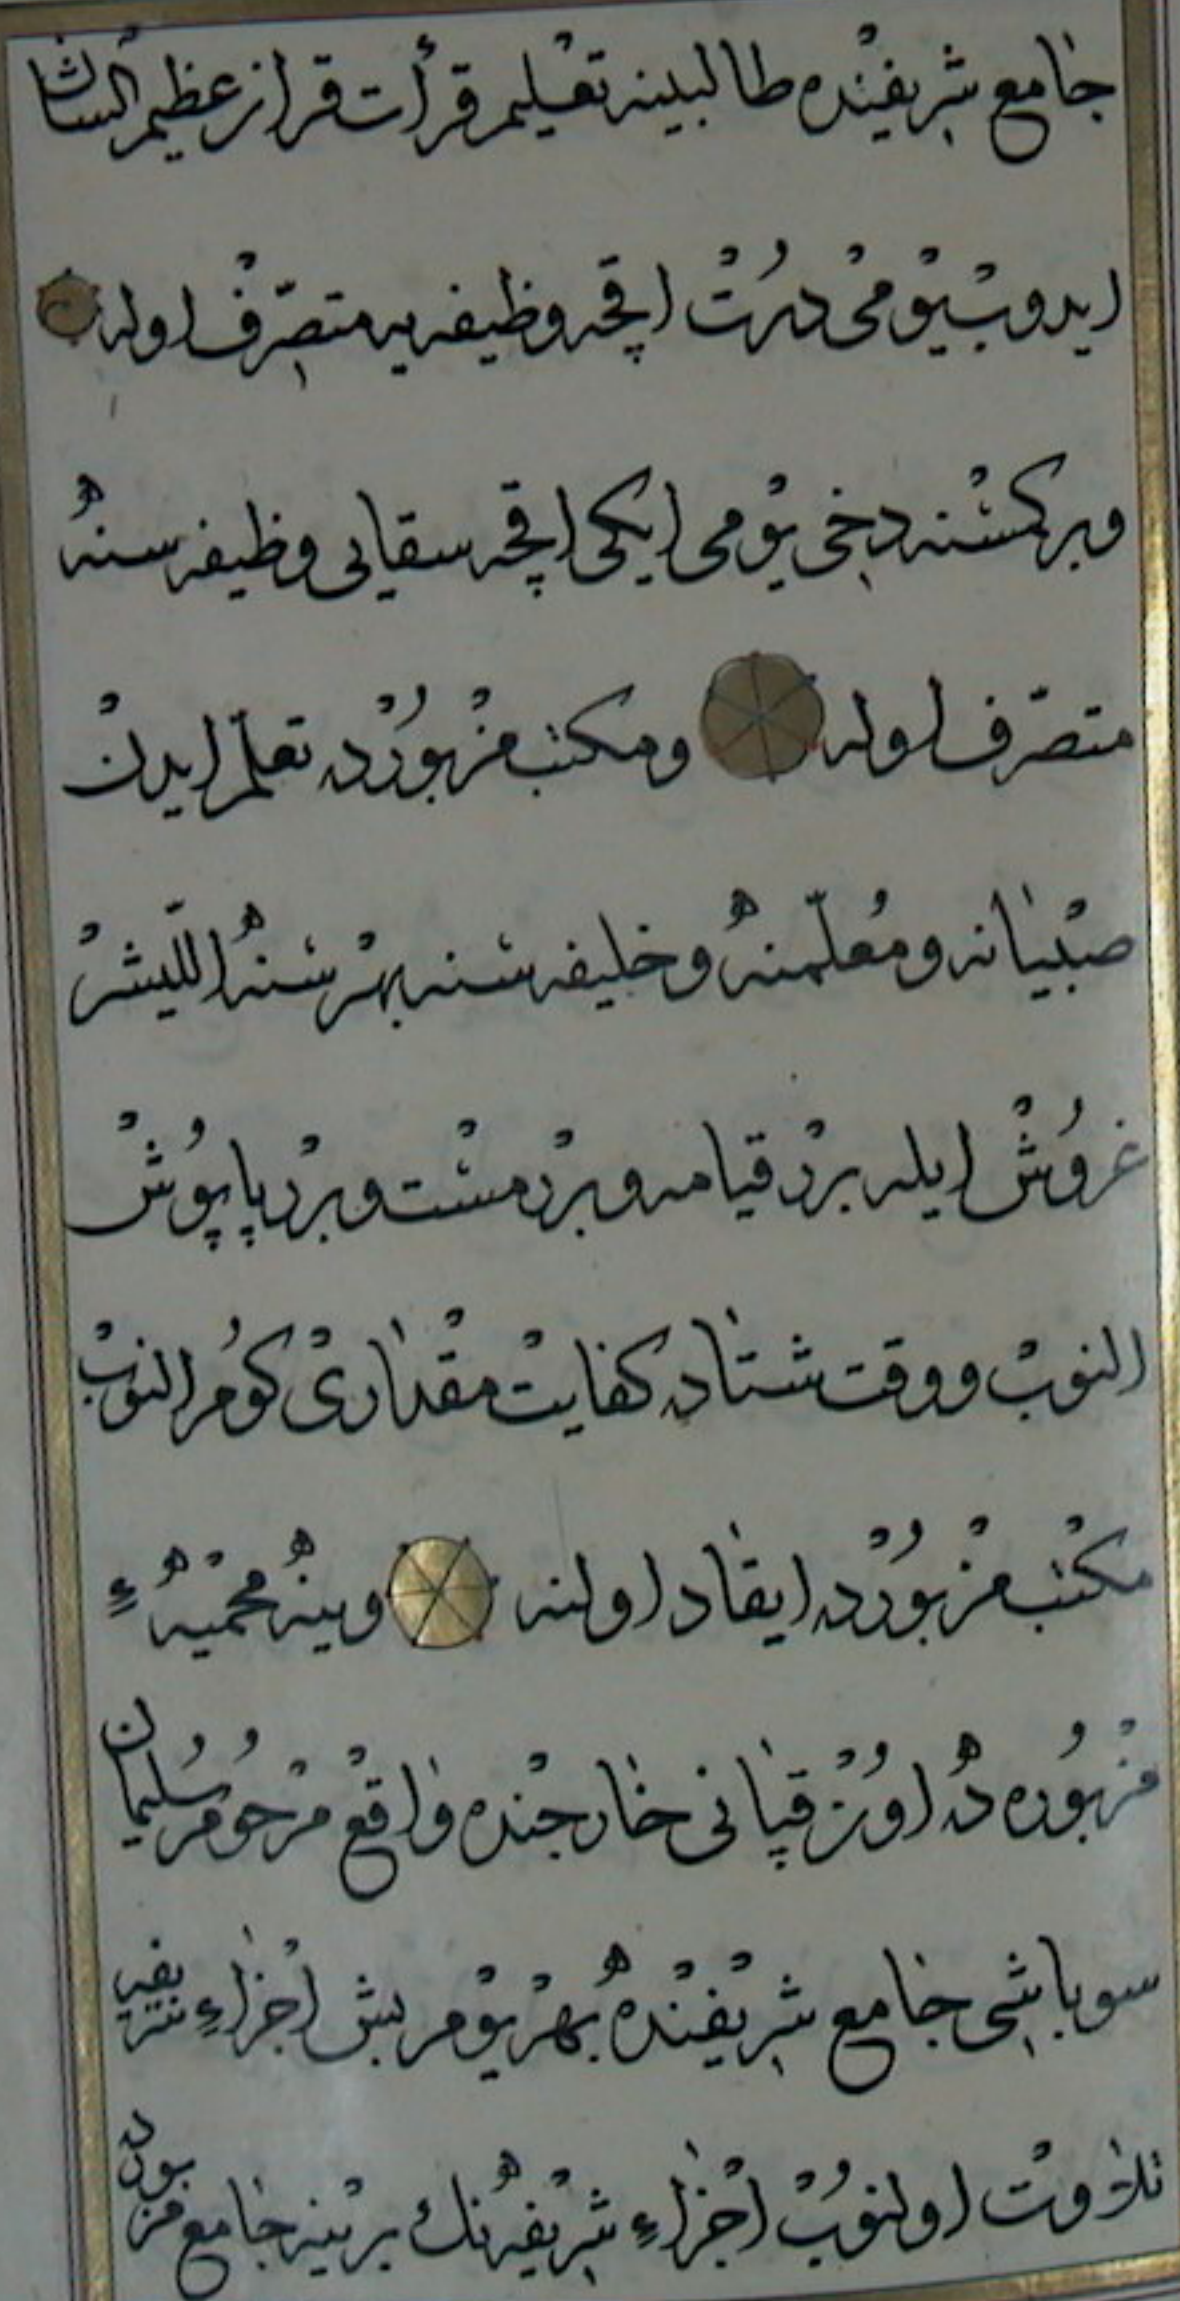 جامع شریفنده طالبینه تعلیم قرأت قران عظیم الشان
ایدوب یومی درت اقچه وظیفه یه متصرّف اوله
وبر کمسنه دخی یومی ایکی اقچه سقایی وظیفه سنه
متصرّف اوله ومکتب مزبورده تعلّم ایدن
صبیانه ومعلّمنه وخلیفه سنه بهر سنه اللیشر
غروش ایله برر قپامه وبرر مست وبرر پاپوش
النوب ووقت شتاده کفایت مقداری کومر النوب
مکتب مزبورده ایقاد اولنه وینه محمیهٔ
مزبوره ده اون قپانی خارجنده واقع مرحوم سلیمان
سوباشی جامع شریفنده بهر یوم بش اجزاء شریف
تلاوت اولنوب اجزاء شریفه نك برینه جامع مزبورد